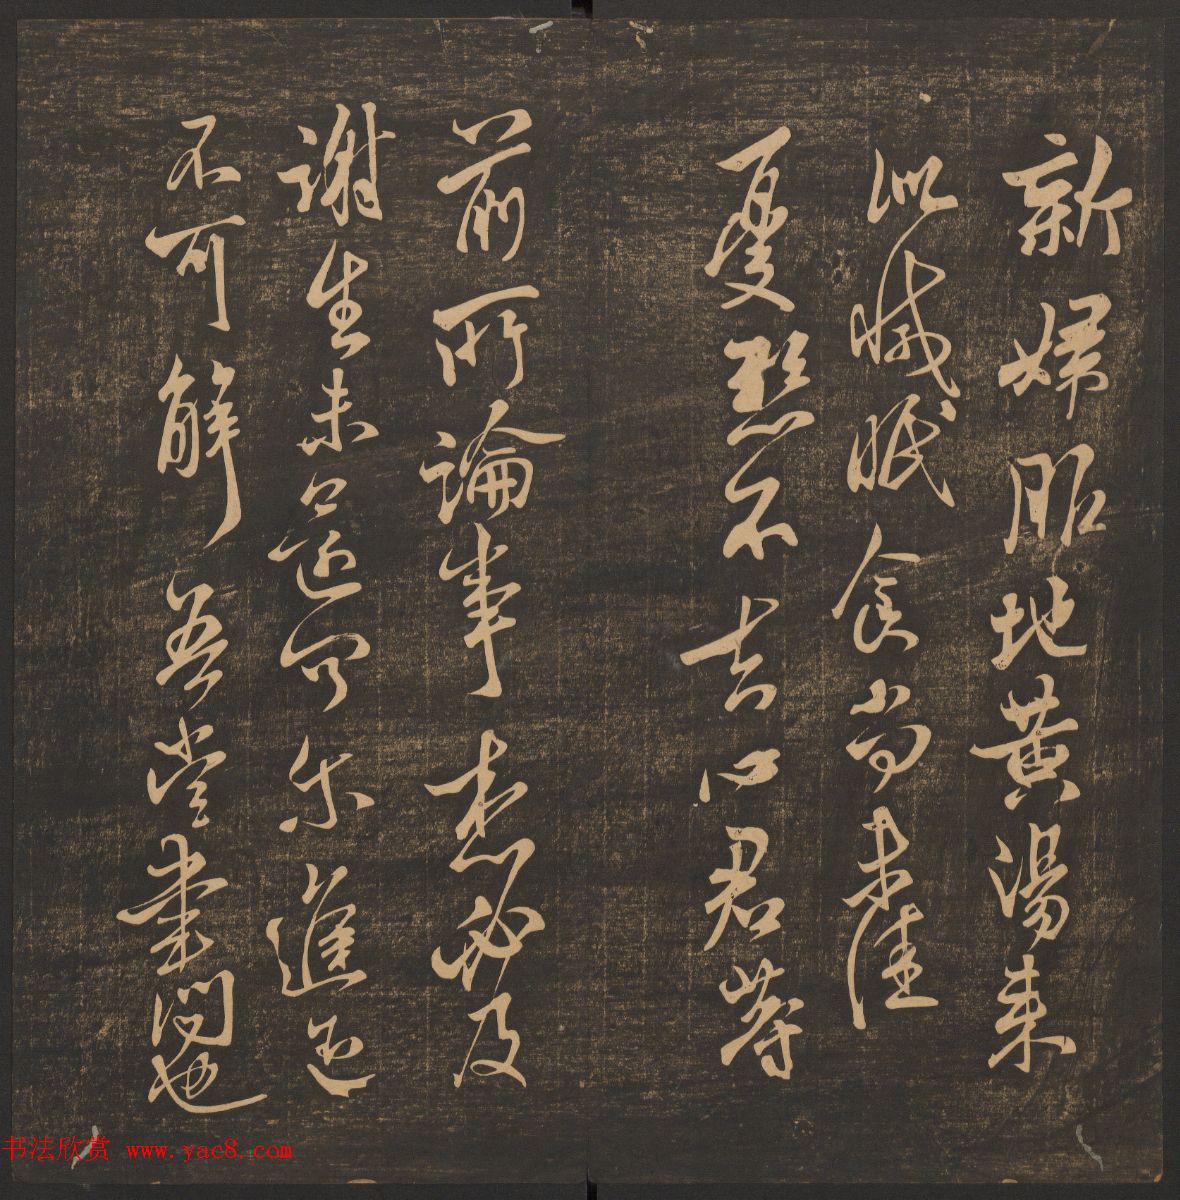 新婦服地黃湯來
似減眠食尚未佳
憂懸不去心君等
前所論事想必及
謝生未還何爾進退
不可解吾當書問也
书法欣赏 www.yac8.com